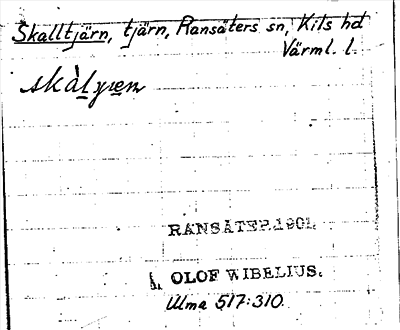 Skalltjärn, tjärn, Ransäters sn, Kils hd
Värml. l.
RANSÄTER 1901.
OLOF WIBELIUS.
Ulma 517:310.